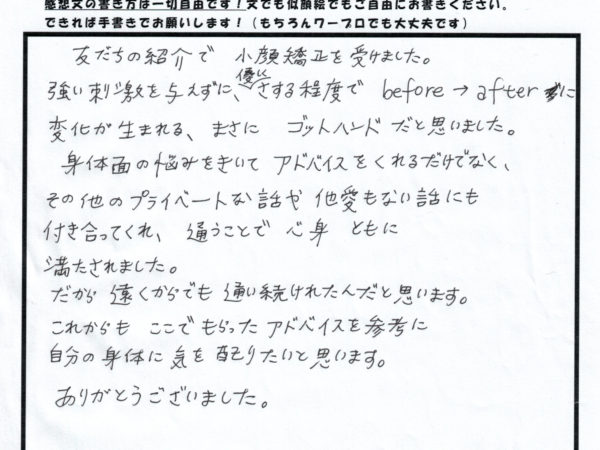 感想文の書き方は一切自由です！文でも似顔絵でもご自由にお書きください。
できれば手書きでお願いします！（もちろんワープロでも大丈夫です）
友だちの紹介で 小顔矯正を受けました。
強い刺激を与えずに、優しくさする程度で before → after に
変化が生まれる、まさに ゴットハンドだと思いました。
身体面の悩みをきいてアドバイスをくれるだけでなく、
その他のプライベートな話や他愛もない話にも
付き合ってくれ、通うことで心身ともに
満たされました。
だから遠くからでも通い続けれたんだと思います。
これからもここでもらったアドバイスを参考に
自分の身体に気を配りたいと思います。
ありがとうございました。